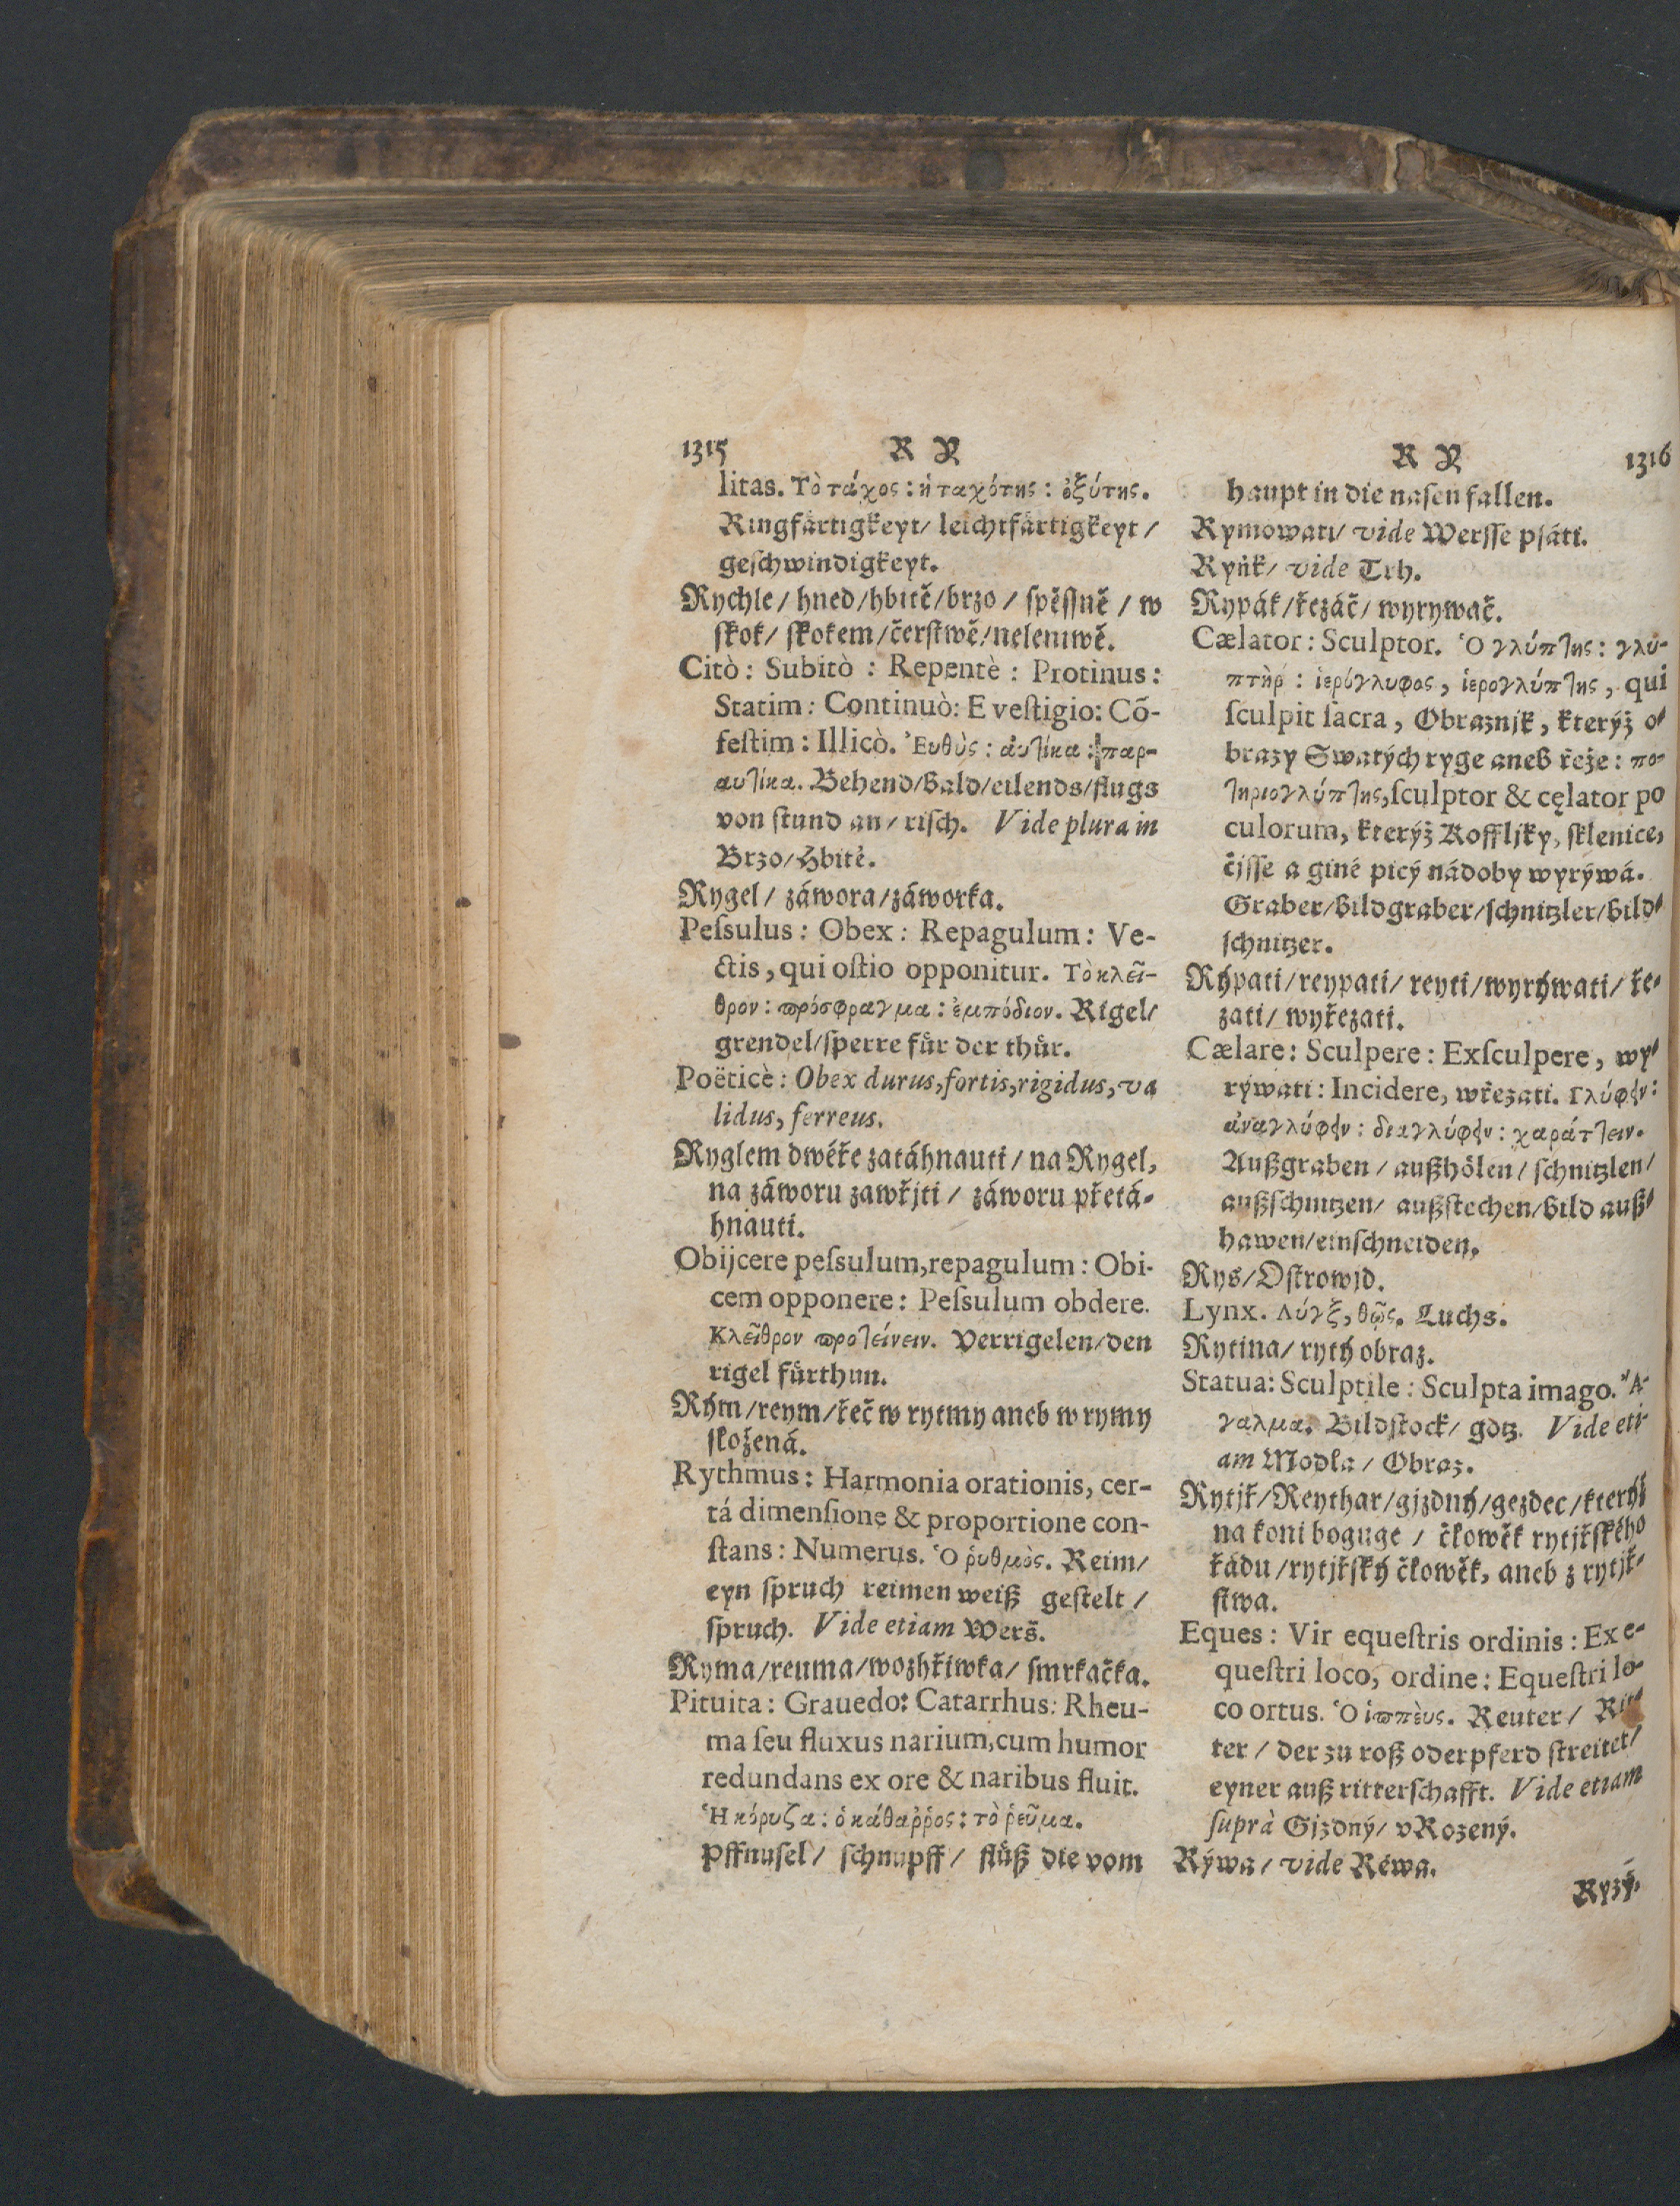 1315 R Y
litas. Τὸ τάχος: ἡ ταχύτης: ὀξύτης.
Ringfärtigkeyt/ leichtfärtigkeyt /
geſchwindigkeyt.
Rychle / hned /hbitě/brzo / ſpěſſně / w
ſkok/ ſkokem /čerſtwě/neleniwě.
Citò: Subitò : Repentè : Protinus:
Statim: Continuò: E veſtigio: Cõ-
feſtim: Illicò. Ἐυθὺς: ἀυτίκα : παρ-
αυτίκα. Behend/bald/eilends/flugs
von ſtund an / riſch. Vide plura in
Brzo/Hbitě.
Rygel / záwora/záworka.
Peſsulus: Obex: Repagulum: Ve-
ctis, qui oſtio opponitur. Τὸ κλεῖ-
θρον: πρόσφραγμα: ἐμπόδιον. Rigel/
grendel/ſperre für der thür.
Poëticè: Obex durus,fortis,rigidus, va
lidus, ferreus.
Ryglem dwéře zatáhnauti / na Rygel,
na záworu zawřjti / záworu přetá-
hnauti.
Obijcere peſsulum,repagulum: Obi-
cem opponere: Peſsulum obdere.
Κλεῖθρον προτείνειν. Verrigelen/den
rigel fürthun.
Rým/reym/řeč w rytmy aneb w rymy
ſložená.
Rythmus: Harmonia orationis, cer-
tá dimenſione & proportione con-
ſtans: Numerus. Ὁ ῥυθμὸς. Reim/
eyn ſpruch reimen weiß geſtelt /
ſpruch. Vide etiam Werš.
Ryma/reuma/wozhřiwka/ ſmrkačka.
Pituita: Grauedo: Catarrhus: Rheu-
ma ſeu fluxus narium,cum humor
redundans ex ore & naribus fluit.
Ἡ κόρυζα: ὁ κάθαῤῥος: τὸ ῥεῦμα.
Pffnuſel/ ſchnupff / flüß die vom
R Y 1316
haupt in die naſen fallen.
Rymowati/ vide Werſſe pſáti.
Ryňk/ vide Trh.
Rypák/řezáč/ wyrywač.
Cælator: Sculptor. Ὁ γλύπτης: γλυ-
πτὴρ: ἱερόγλυφος, ἱερογλύπτης, qui
ſculpit ſacra, Obraznjk, kterýž o-
brazy Swatých ryge aneb řeže: πο-
τηριογλύπτης,ſculptor & cęlator po
culorum, kterýž Koffljky, ſklenice,
čjſſe a giné picý nádoby wyrýwá.
Graber/bildgraber/ſchnitzler/bild-
ſchnitzer.
Rýpati/reypati/ reyti/wyrýwati/ ře-
zati/ wyřezati.
Cælare: Sculpere: Exſculpere, wy-
rýwati: Incidere, wřezati. Γλύφειν:
ἀναγλύφειν: διαγλύφειν: χαράττειν.
Außgraben / außhölen/ ſchnitzlen/
außſchnitzen/ außſtechen/bild auß-
hawen/einſchneiden.
Rys/Oſtrowjd.
Lynx. Λύγξ, θῶς. Luchs.
Rytina/ rytý obraz.
Statua: Sculptile: Sculpta imago. Ἄ-
γαλμα. Bildſtock/ götz. Vide eti-
am Modla / Obraz.
Rytjř/Reythar/gjzdný/gezdec/kterýž
na koni boguge / člowěk rytjřſkého
řádu /rytjřſký člowěk, aneb z rytjř-
ſtwa.
Eques: Vir equeſtris ordinis: Ex e-
queſtri loco, ordine: Equeſtri lo-
co ortus. Ὁ ἱππὲυς. Reuter / Rit-
ter / der zu roß oder pferd ſtreitet/
eyner auß ritterſchafft. Vide etiam
ſuprà Gjzdný/ vRozený.
Rýwa / vide Réwa.
Ryzý.